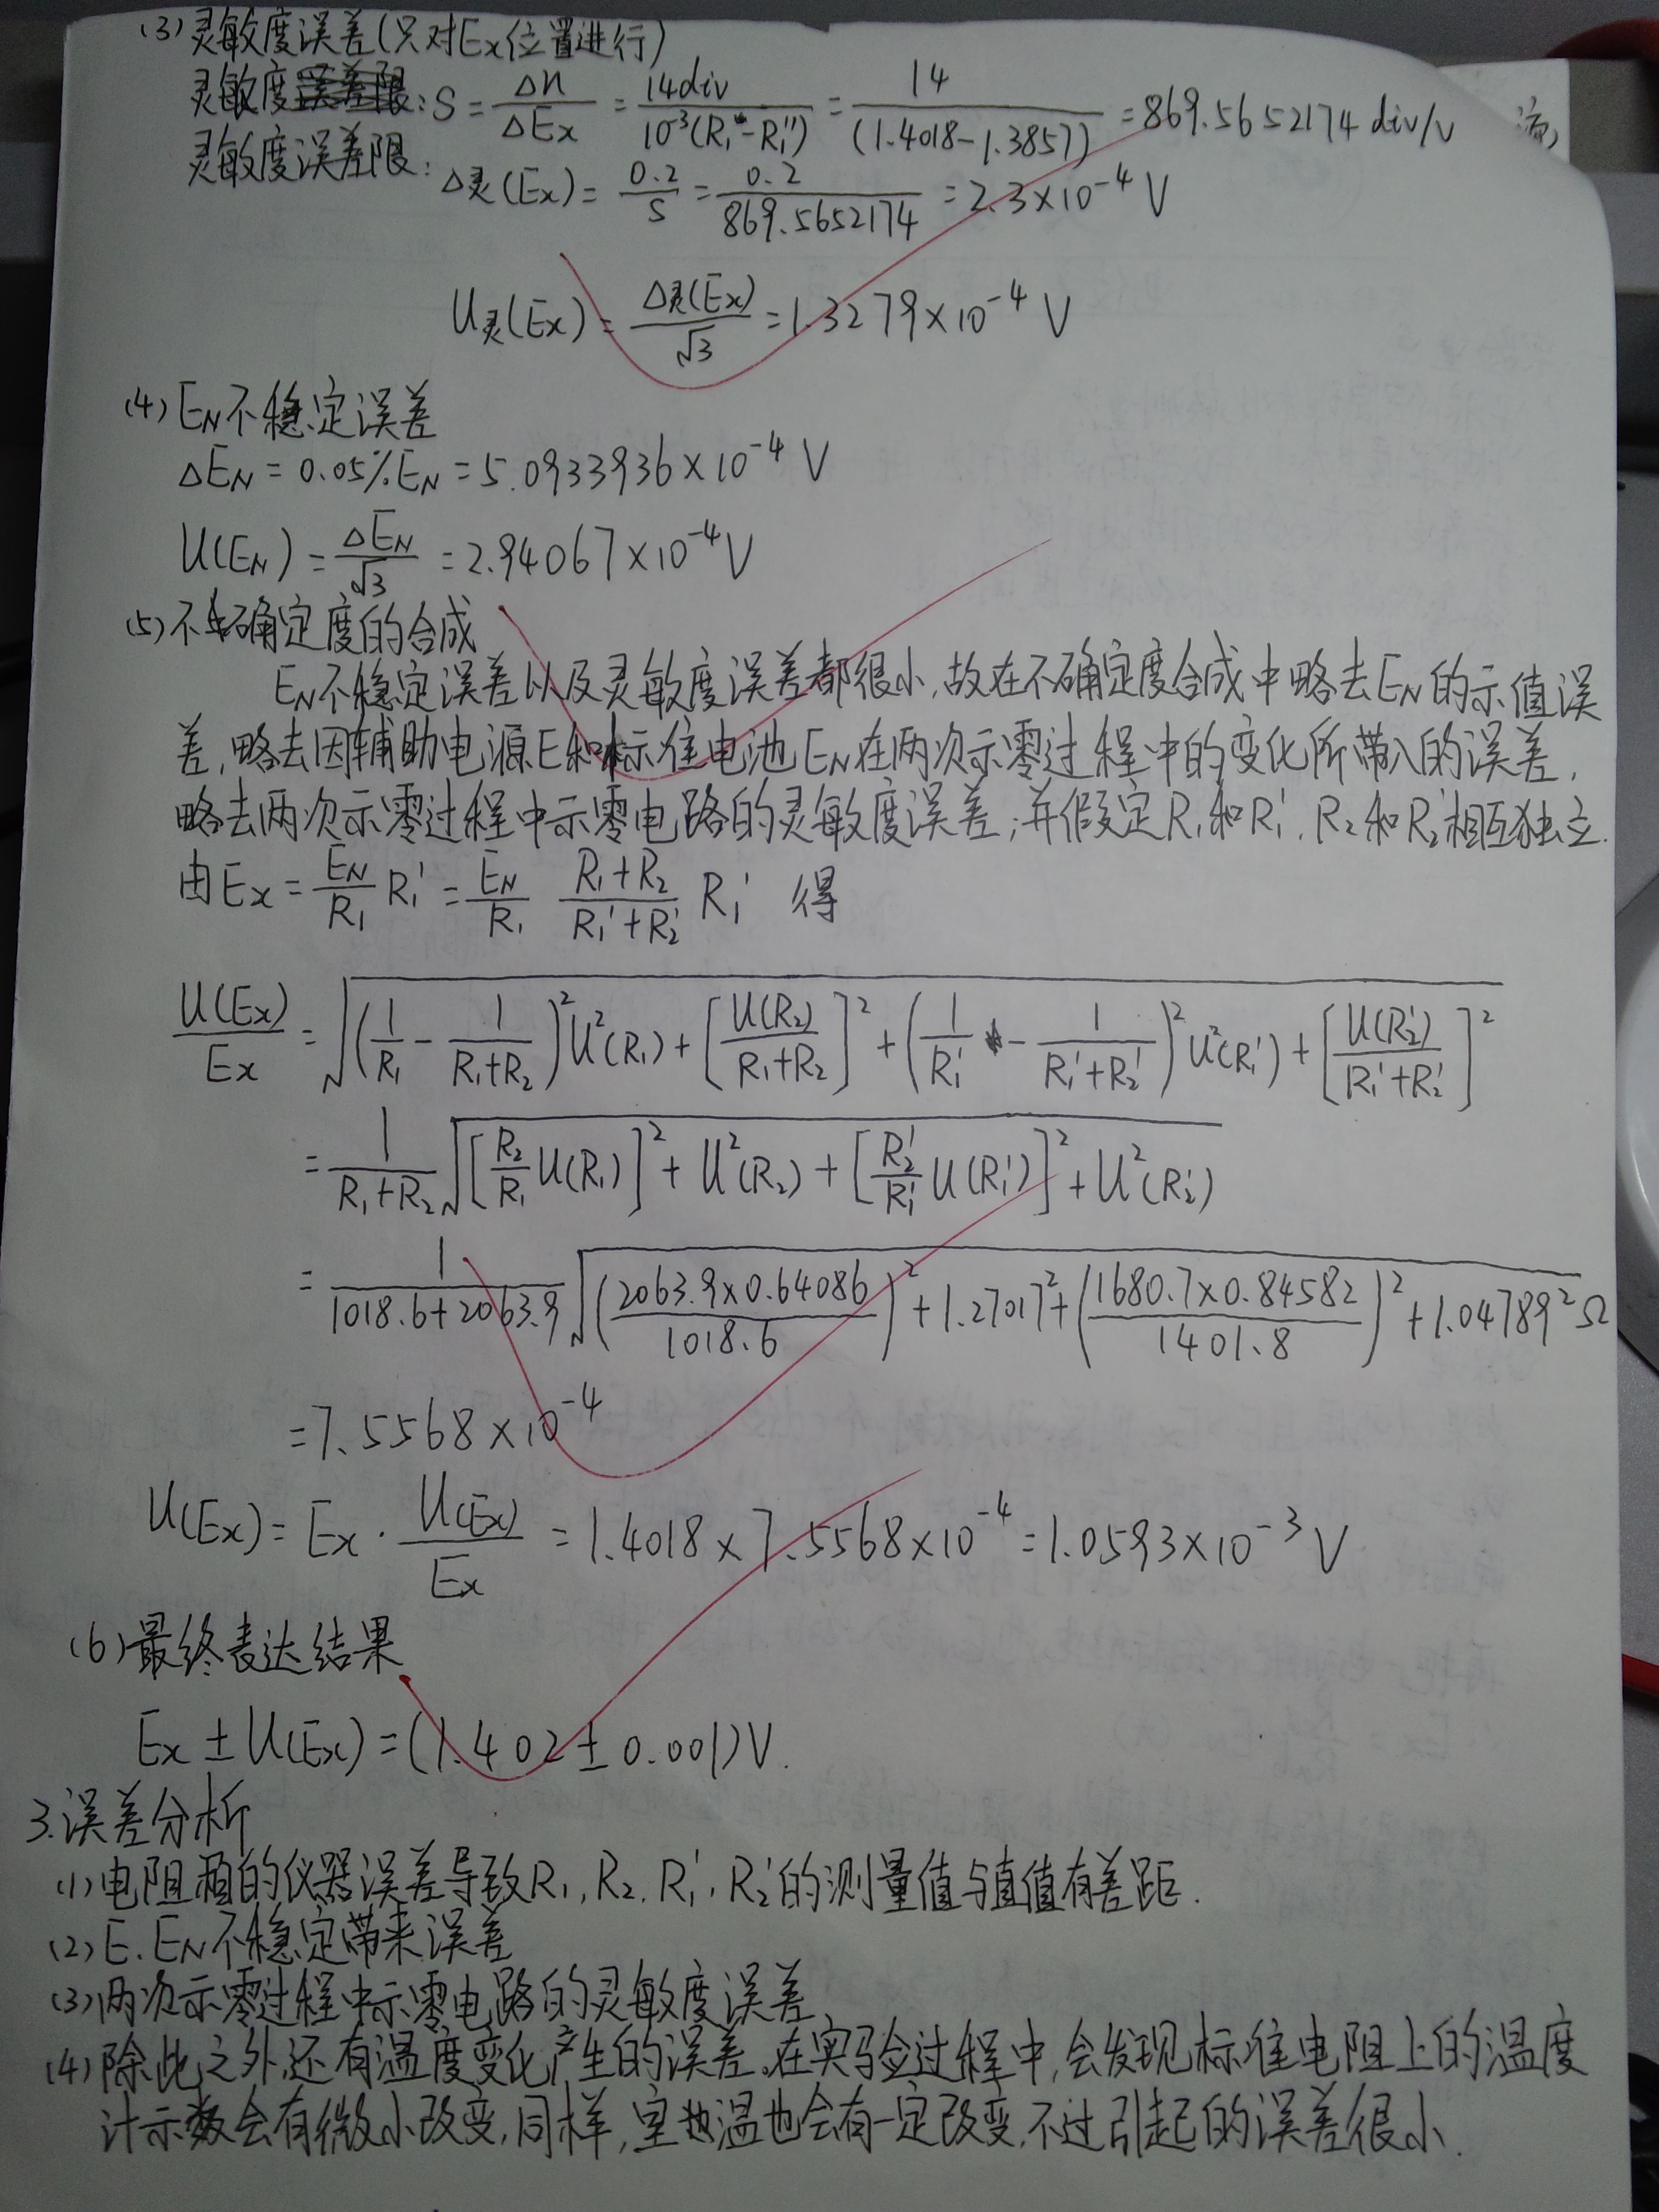 (3) 灵敏度误差(只对Ex位置进行)
灵敏度: S = Δn/ΔEx = 14div/10⁻³(R₁'-R₁'') = 14/(1.4018-1.3857) = 869.5652174 div/V
灵敏度误差限: Δ灵(Ex) = 0.2/S = 0.2/869.5652174 = 2.3×10⁻⁴ V
U灵(Ex) = Δ灵(Ex)/√3 = 1.3279×10⁻⁴ V
(4) EN不稳定误差
ΔEN = 0.05%EN = 5.0933936×10⁻⁴ V
U(EN) = ΔEN/√3 = 2.94067×10⁻⁴ V
(5) 不确定度的合成
EN不稳定误差以及灵敏度误差都很小,故在不确定度合成中略去EN的示值误
差,略去因辅助电源E和标准电池EN在两次示零过程中的变化所带入的误差,
略去两次示零过程中示零电路的灵敏度误差;并假定R₁和R₁', R₂和R₂'相互独立.
由Ex = EN/R₁ R₁' = EN/R₁ (R₁+R₂)/(R₁'+R₂') R₁' 得
U(Ex)/Ex = √((1/R₁ - 1/(R₁+R₂))²U²(R₁) + [U(R₂)/(R₁+R₂)]² + (1/R₁' - 1/(R₁'+R₂'))²U²(R₁') + [U(R₂')/(R₁'+R₂')]²)
= 1/(R₁+R₂) √([R₂/R₁ U(R₁)]² + U²(R₂) + [R₂'/R₁' U(R₁')]² + U²(R₂'))
= 1/(1018.6+2063.9) √((2063.9×0.64086/1018.6)² + 1.27017² + (1680.7×0.84582/1401.8)² + 1.04789²) Ω
= 7.5568×10⁻⁴
U(Ex) = Ex · U(Ex)/Ex = 1.4018×7.5568×10⁻⁴ = 1.0593×10⁻³ V
(6) 最终表达结果
Ex ± U(Ex) = (1.402 ± 0.001)V.
3.误差分析
(1) 电阻箱的仪器误差导致R₁, R₂, R₁', R₂'的测量值与真值有差距.
(2) E. EN不稳定带来误差
(3) 两次示零过程中示零电路的灵敏度误差
(4) 除此之外,还有温度变化产生的误差。在实验过程中,会发现标准电阻上的温度
计示数会有微小改变,同样,室温也会有一定改变,不过引起的误差很小.